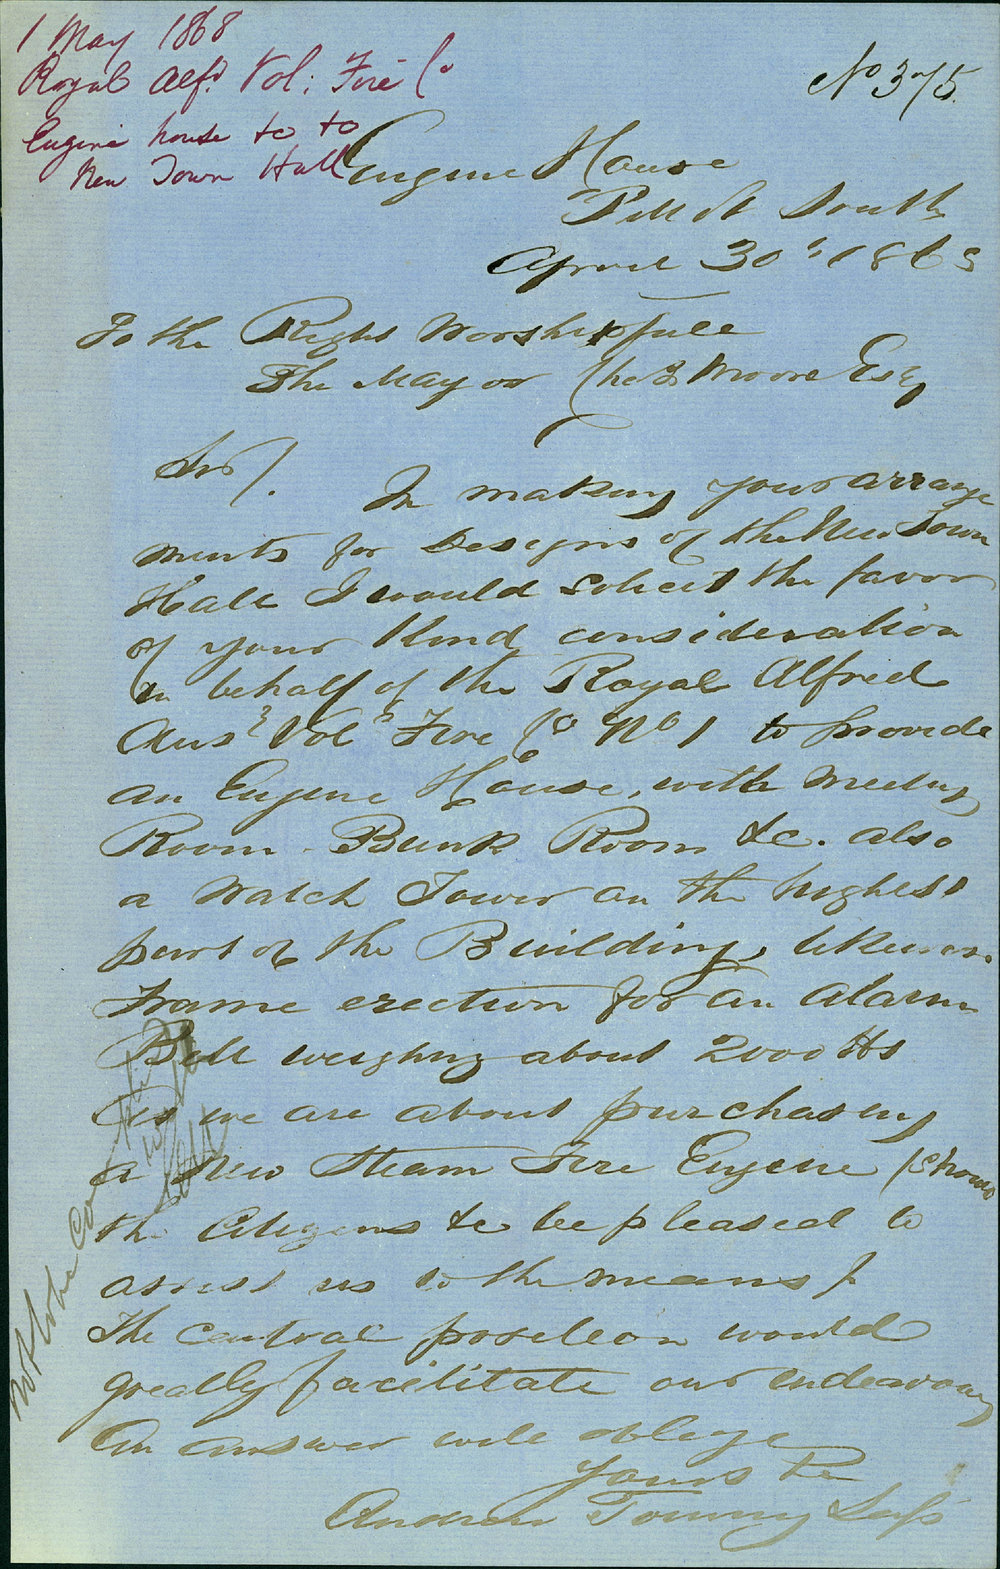 1 May 1868
Royal Alfd. Vol: Fire Co
Engine house to to
New Town Hall
No 375.
Engine House
Pitt St South
April 30th 1868
To the Right Worshipfull
The Mayor Chas Moore Esq
Sir/.
In making your arrange
ments for Designs of the New Town
Hall I would solicit the favor
of your Kind consideration
in behalf of the Royal Alfred
Aus Vol Fire Co No 1 to provide
an Engine House, with Meeting
Room - Bunk Room &c. also
a Watch Tower on the highest
part of the Building, likewise
Frame erection for an Alarm
Bell weighing about 2000 lbs
As we are about purchasing
a New Steam Fire Engine (should
the Citizens &c be pleased to
assist us to the means)
The Central position would
greatly facilitate our endeavours
An answer will oblige
Yours &c
Andrew Torning Supt